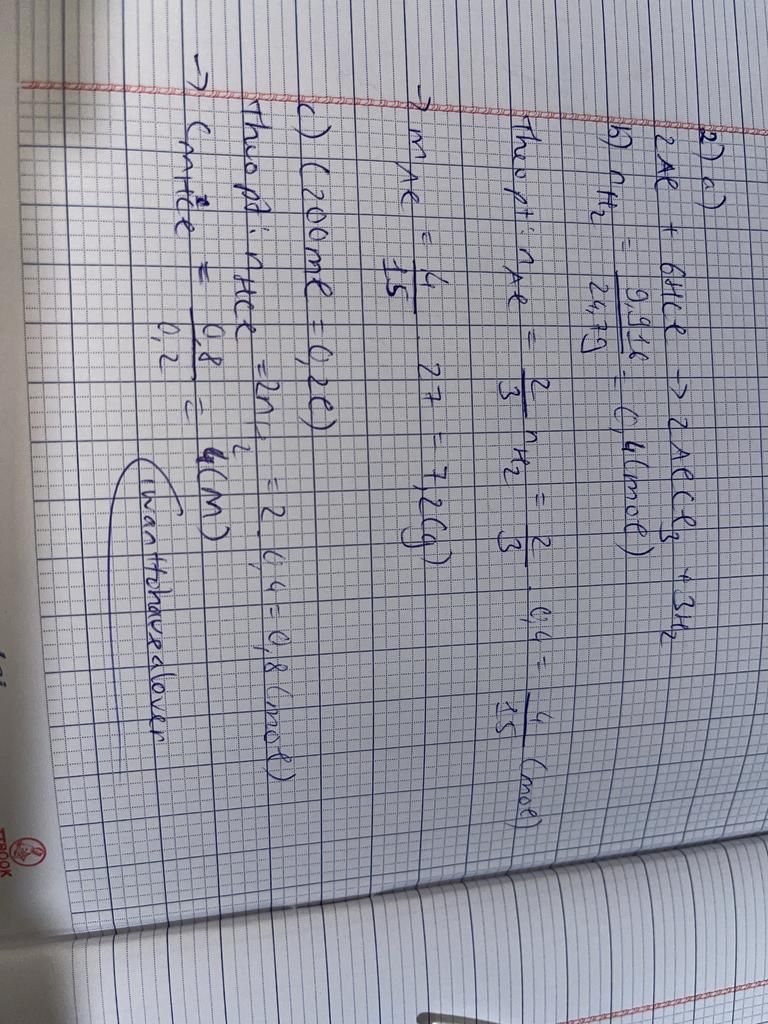 2) a)
2Al + 6HCl → 2AlCl3 + 3H2
b) nH2 = 9,916/24,79 = 0,4(mol)
Theo pt: nAl = 2/3 nH2 = 2/3 . 0,4 = 4/15 (mol)
→ mAl = 4/15 . 27 = 7,2(g)
c) (200ml = 0,2l)
Theo pt: nHCl = 2nH2 = 2. 0,4 = 0,8(mol)
→ CMHCl = 0,8/0,2 = 4(M)
iwanttohavealover